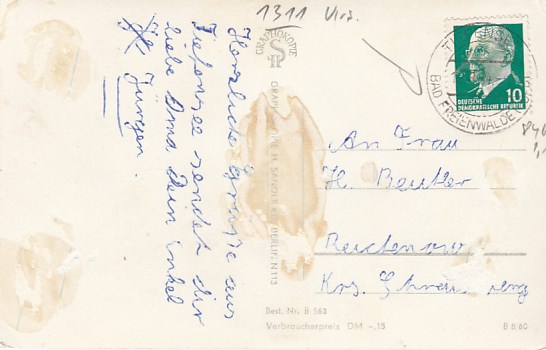 1311 Vrz.
Herzliche Grüsse aus
Tiefensee sendet dir
liebe Oma Dein Enkel
Jürgen.
GRAPHOKOPIE
GRAPHOKOPIE H. SANDER KG BERLIN N 113
10
DEUTSCHE
DEMOKRATISCHE REPUBLIK
BAD FREIENWALDE
An Frau
H. Beutler
Reichenow
Krs.
Best. Nr. B 563
Verbraucherpreis DM -.15
B 8 60